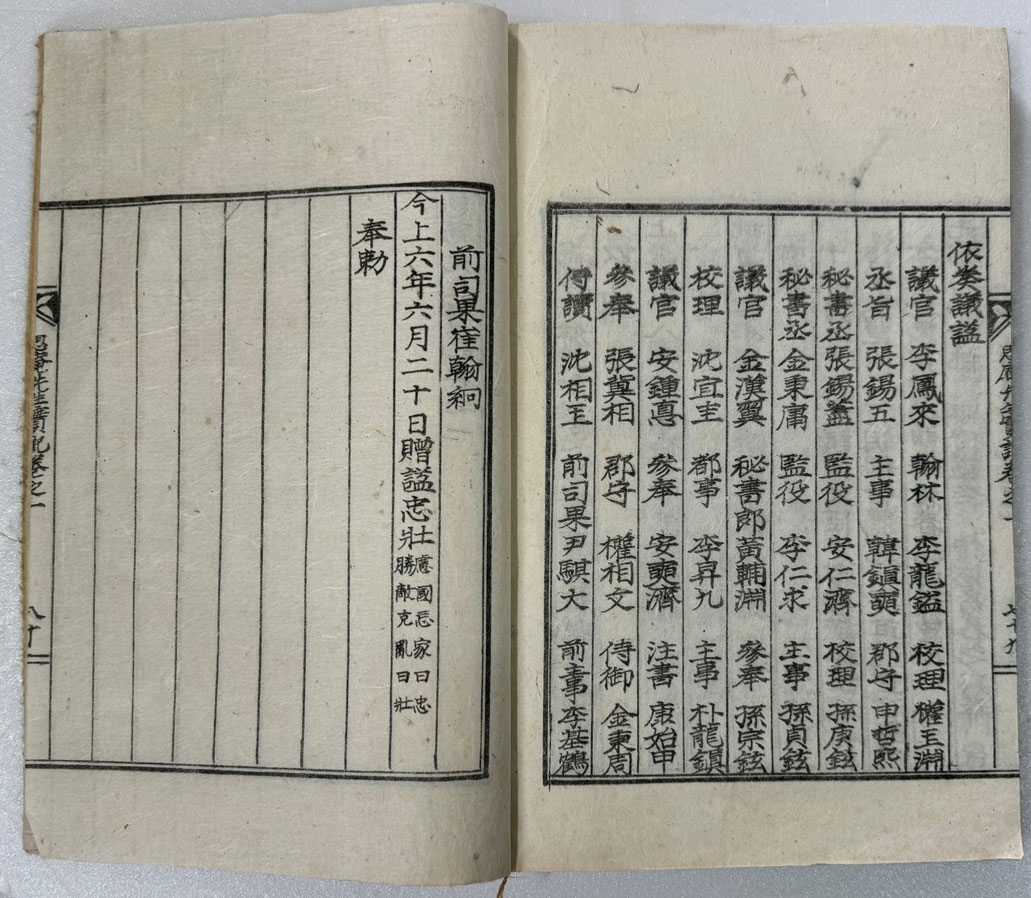 依奏議諡
議官 李鳳來 翰林 李龍鎰 校理 權玉淵
丞旨 張錫五 主事 韓鎭奭 郡守 申哲熙
秘書丞 張錫藎 監役 安仁濟 校理 孫庚鉉
秘書丞 金秉庸 監役 李仁求 主事 孫貞鉉
議官 金漢翼 秘書郎 黃輔淵 參奉 孫宗鉉
校理 沈宜 都事 李昇九 主事 朴龍鎭
議官 安鍾悳 參奉 安奭濟 注書 康始甲
參奉 張冀相 郡守 權相文 侍御 金東周
侍讀 沈相 前司果 尹騏大 前主事 李基鶴
先生實記卷之一
七十九
前司果 崔翰
今上六年六月二十日贈諡忠壯 慮國忘家曰忠 勝敵克亂曰壯
奉勅
先生實記卷之一
八十